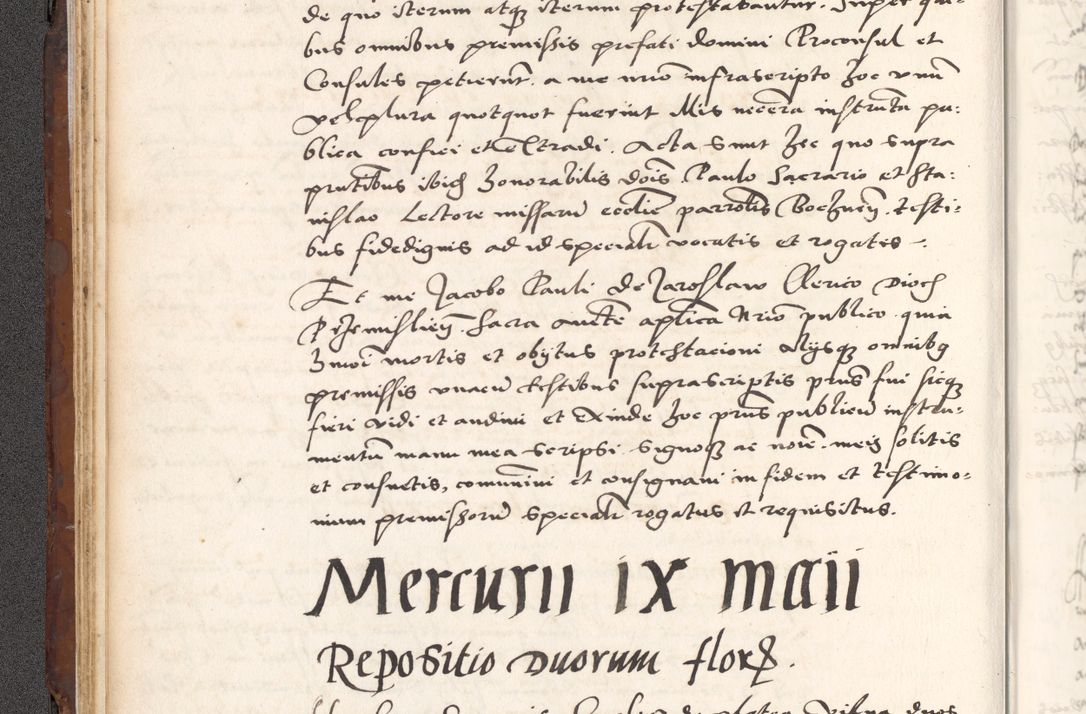 de quo iterum atq iterum protestabantur. Super qui-
bus omnibus premissis prefati domini Proconsul et
Consules petierūt a me nrio infrascripto hoc unū
vel plura quotquot fuerint illis necēria instrūta pu:
blica confici et extradi. Acta sunt hec quo supra
pntibus ibid honorabilis dōis Paulo Sacrario et Sta:
nislao Lectore missarū ecclie parrotis Bochnen̄. testi:
bus fidedignis ad id specialr vocatis et rogatis
Et me Jacobo Pauli de Jaroslaw Clerico Dioc
Premislien̄ Sacra aucte aplica Nrio publico quia
hmōi mortis et obitus protestacioni Alijsq omnibq
premissis unacū testibus suprascriptis pns fui sicq
fieri vidi et audivi et Exinde hoc pns publicū instru-
mentū manu mea scripsi signoq ac noīe meis solitis
et consuetis, comunivi et consignavi in fidem et testimo-
nium premissorū specialr rogatus et requisitus.
Mercurii ix maii
Repositio duorum flor